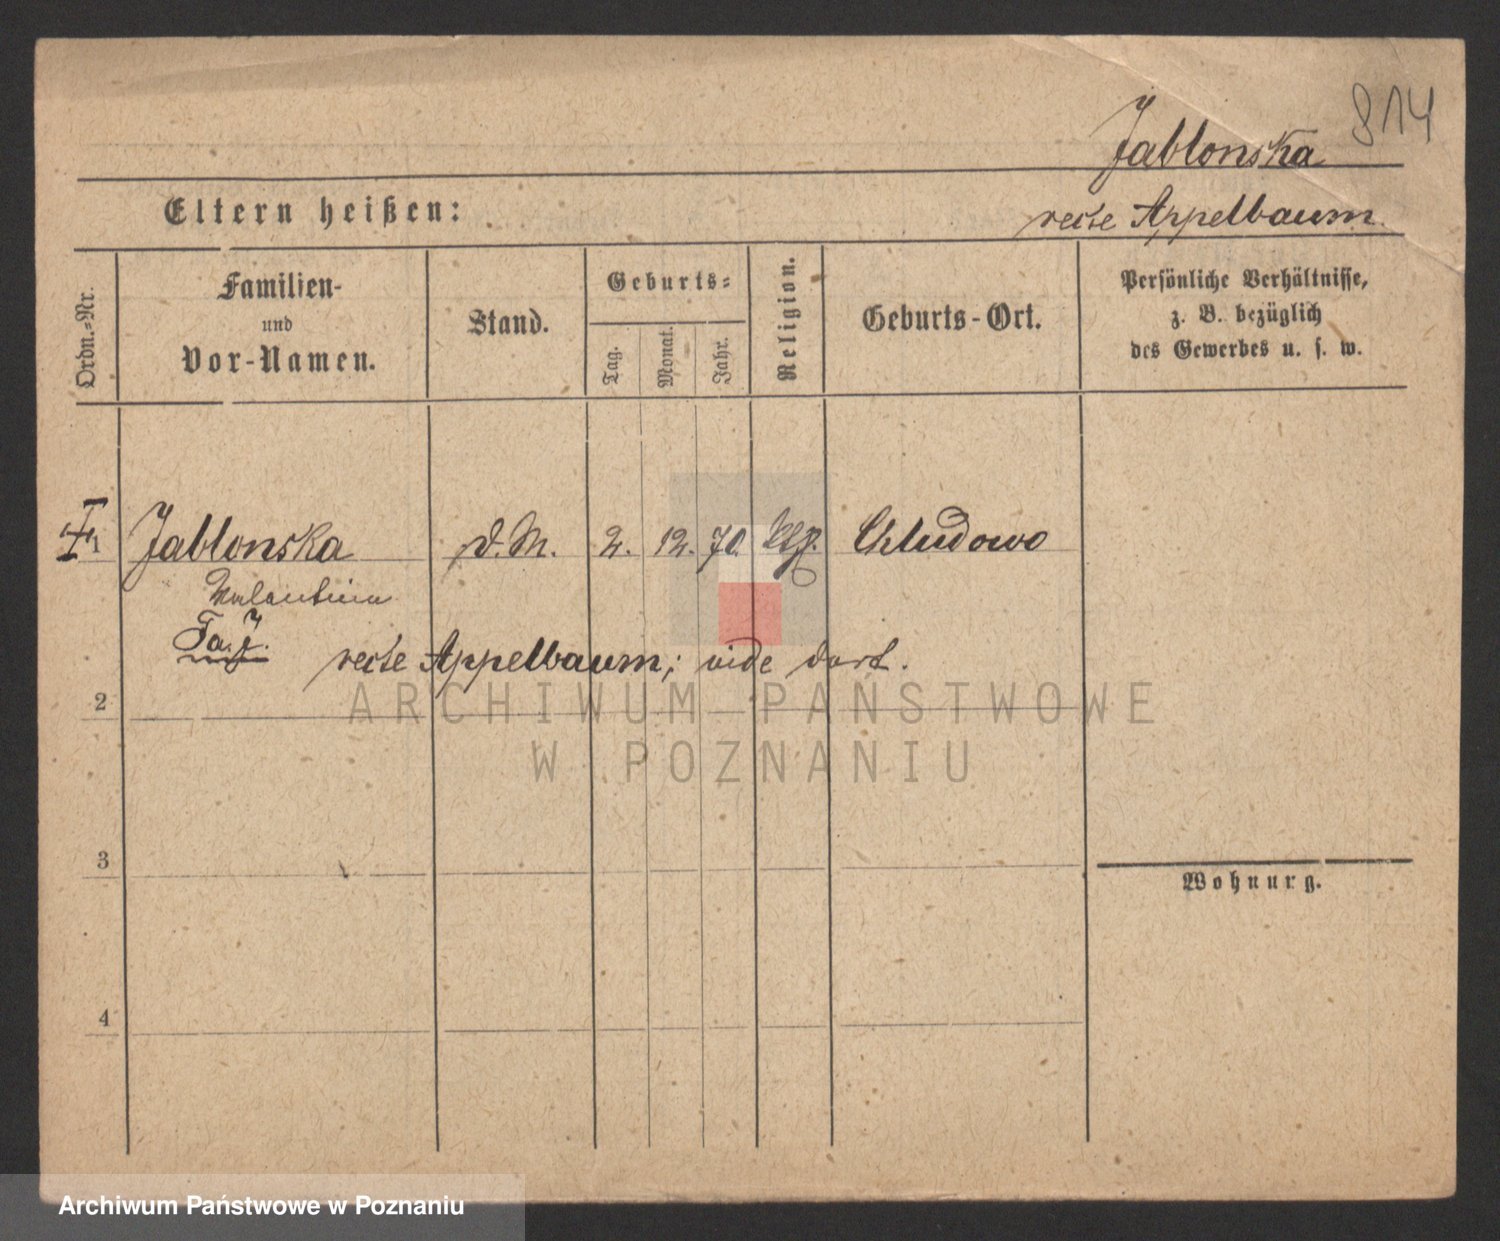 814
Jablonska
Eltern heißen:
recte Appelbaum.
Ordn.-Nr.
Familien-
und
Vor-Namen.
Stand.
Geburts-
Tag.
Monat.
Jahr.
Religion.
Geburts-Ort.
Persönliche Verhältnisse,
z. B. bezüglich
des Gewerbes u. s. w.
1 Jablonska d. M. 2. 12. 70. Chludowo
Valentina
recte Appelbaum; vide dort.
2
3
Wohnung.
4
ARCHIWUM PAŃSTWOWE
W POZNANIU
Archiwum Państwowe w Poznaniu